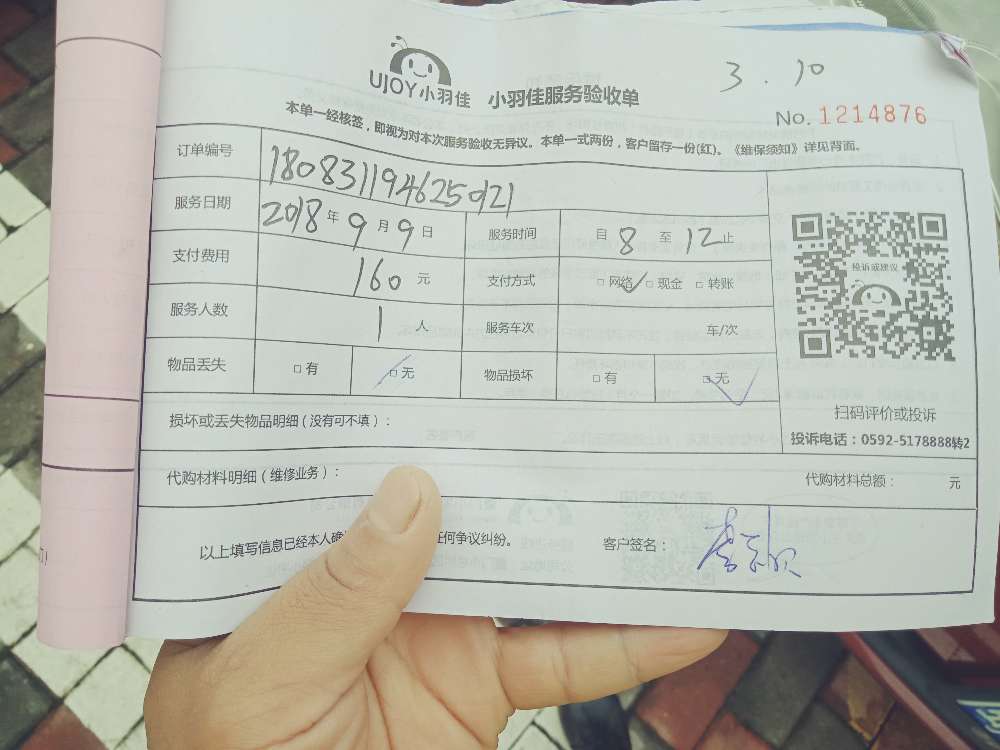 3.10
UJOY小羽佳 小羽佳服务验收单
No.1214876
本单一经核签，即视为对本次服务验收无异议。本单一式两份，客户留存一份(红)。《维保须知》详见背面。
订单编号 1808311946250121
服务日期 2018年9月9日 服务时间 自8至12止
支付费用 160元 支付方式 □网络✓□现金 □转账
服务人数 1人 服务车次 车/次
物品丢失 □有 □无✓ 物品损坏 □有 □无✓
投诉或建议
扫码评价或投诉
投诉电话：0592-5178888转2
损坏或丢失物品明细（没有可不填）：
代购材料明细（维修业务）： 代购材料总额： 元
以上填写信息已经本人确 任何争议纠纷。 客户签名：